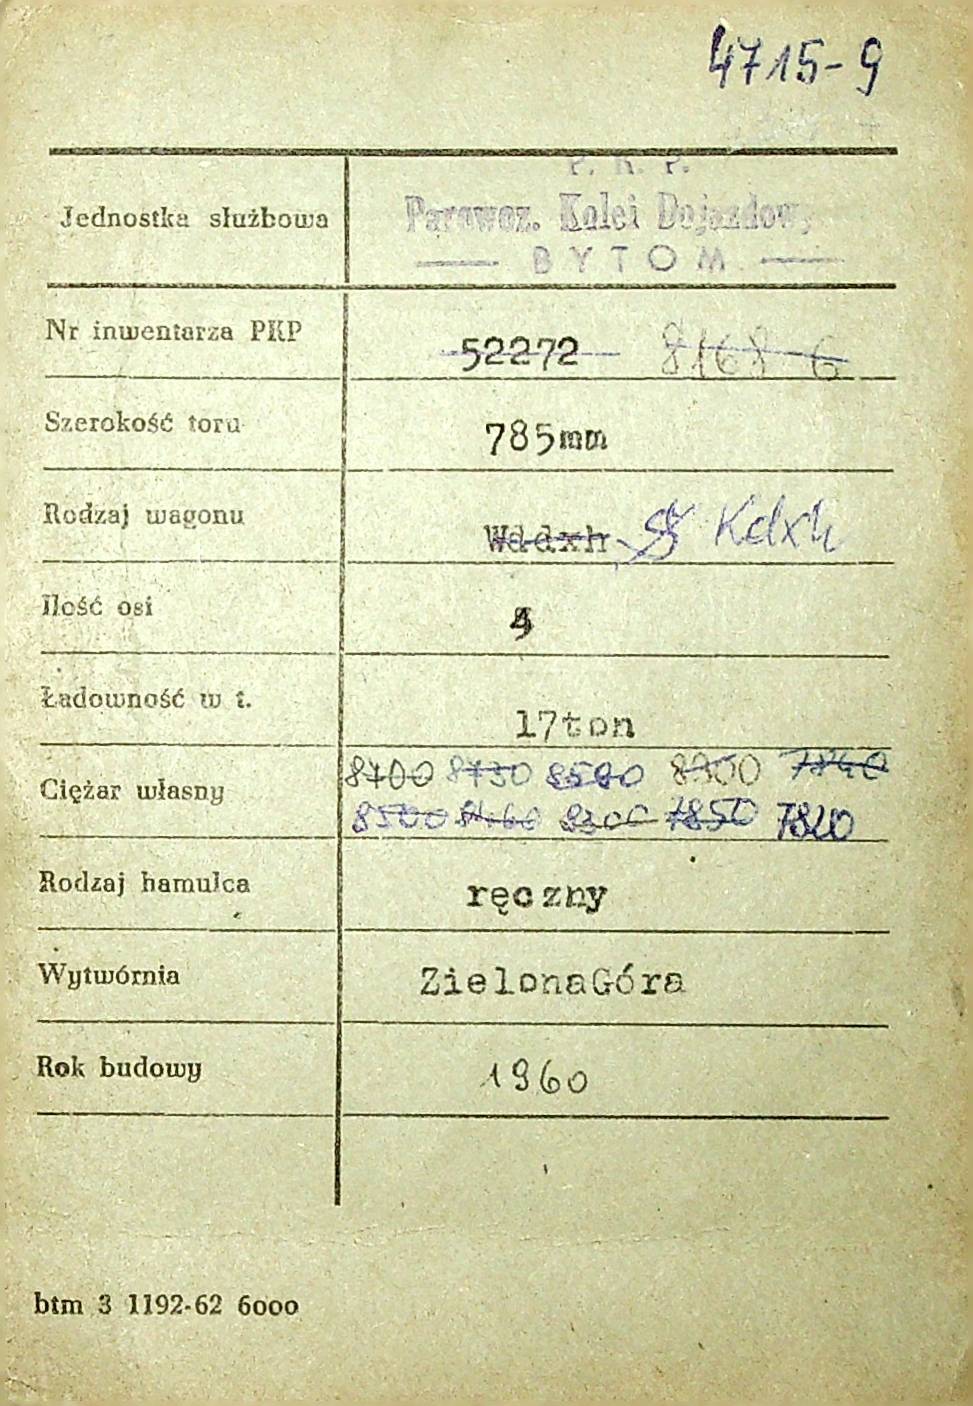 4715-9
P. K. P.
Jednostka służbowa Parowoz. Kolei Dojazdowy
BYTOM
Nr inwentarza PKP 52272 8168-6
Szerokość toru 785mm
Rodzaj wagonu Wddxh Kdxh
Ilość osi 4
Ładowność w t. 17ton
8700 8730 8580 8300 7840
Ciężar własny
8500 8460 8300 7850 7820
Rodzaj hamulca ręczny
Wytwórnia ZielonaGóra
Rok budowy 1960
btm 3 1192-62 6000